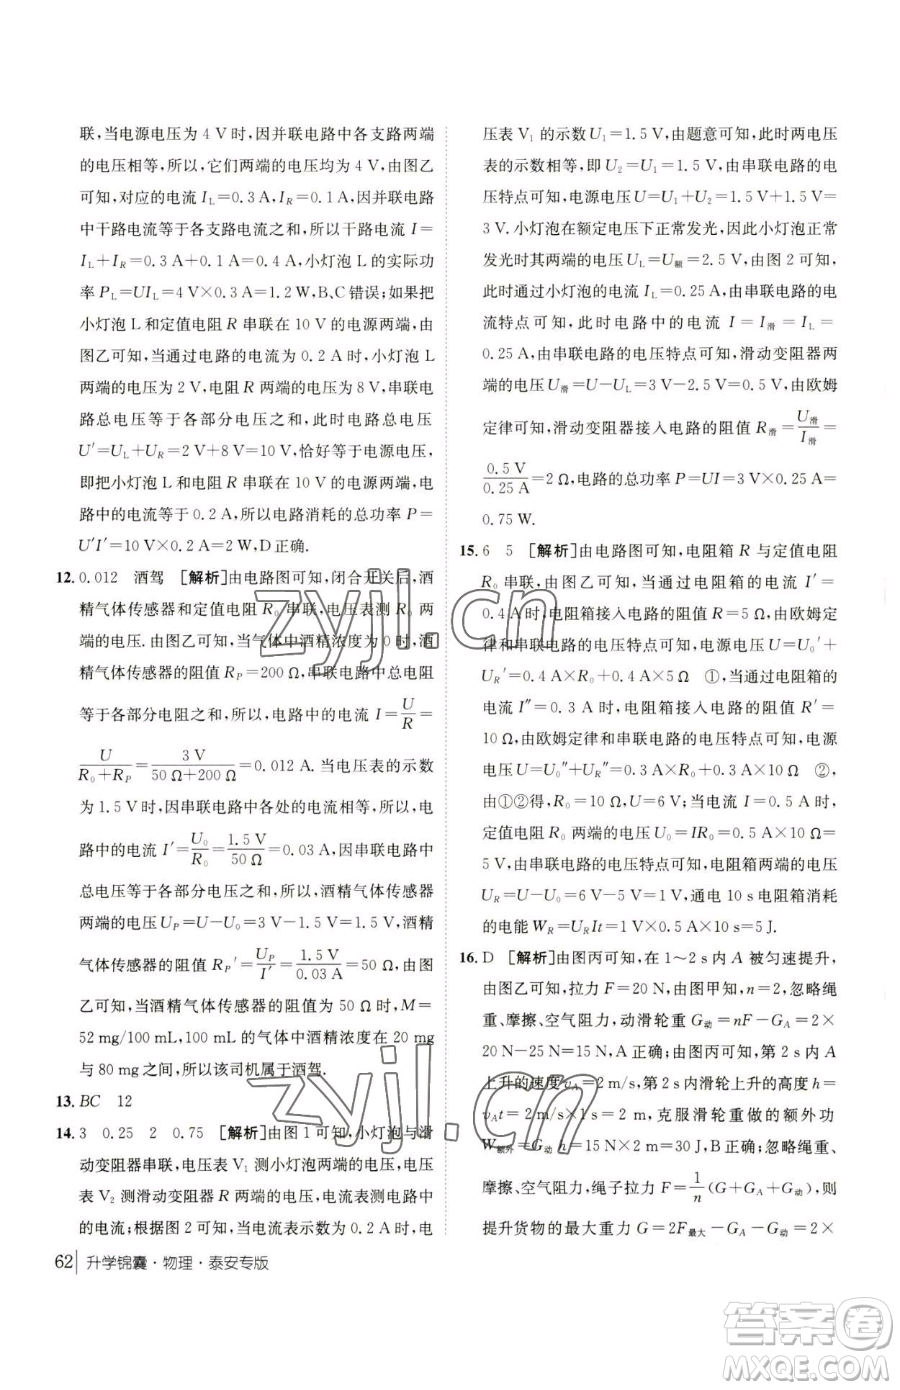 联,当电源电压为 4 V 时,因并联电路中各支路两端
的电压相等,所以,它们两端的电压均为 4 V,由图乙
可知,对应的电流 I_L=0.3 A,I_R=0.1 A,因并联电路
中干路电流等于各支路电流之和,所以干路电流 I=
I_L+I_R=0.3 A+0.1 A=0.4 A,小灯泡 L 的实际功
率 P_L=UI_L=4 V×0.3 A=1.2 W,B、C 错误;如果把
小灯泡 L 和定值电阻 R 串联在 10 V 的电源两端,由
图乙可知,当通过电路的电流为 0.2 A 时,小灯泡 L
两端的电压为 2 V,电阻 R 两端的电压为 8 V,串联电
路总电压等于各部分电压之和,此时电路总电压
U′=U_L+U_R=2 V+8 V=10 V,恰好等于电源电压,
即把小灯泡 L 和电阻 R 串联在 10 V 的电源两端,电
路中的电流等于 0.2 A,所以电路消耗的总功率 P=
U′I′=10 V×0.2 A=2 W,D 正确.
12. 0.012 酒驾 [解析]由电路图可知,闭合开关后,酒
精气体传感器和定值电阻 R₀ 串联,电压表测 R₀ 两
端的电压.由图乙可知,当气体中酒精浓度为 0 时,酒
精气体传感器的阻值 R_P=200 Ω,串联电路中总电阻
等于各部分电阻之和,所以,电路中的电流 I=U/R=
U/(R₀+R_P)=3 V/(50 Ω+200 Ω)=0.012 A.当电压表的示数
为 1.5 V 时,因串联电路中各处的电流相等,所以,电
路中的电流 I′=U₀/R₀=1.5 V/50 Ω=0.03 A,因串联电路中
总电压等于各部分电压之和,所以,酒精气体传感器
两端的电压 U_P=U-U₀=3 V-1.5 V=1.5 V,酒精
气体传感器的阻值 R_P′=U_P/I′=1.5 V/0.03 A=50 Ω,由图
乙可知,当酒精气体传感器的阻值为 50 Ω 时,M=
52 mg/100 mL,100 mL 的气体中酒精浓度在 20 mg
与 80 mg 之间,所以该司机属于酒驾.
13. BC 12
14. 3 0.25 2 0.75 [解析]由图 1 可知,小灯泡与滑
动变阻器串联,电压表 V₁ 测小灯泡两端的电压,电压
表 V₂ 测滑动变阻器 R 两端的电压,电流表测电路中
的电流;根据图 2 可知,当电流表示数为 0.2 A 时,电
压表 V₁ 的示数 U₁=1.5 V,由题意可知,此时两电压
表的示数相等,即 U₂=U₁=1.5 V,由串联电路的电压
特点可知,电源电压 U=U₁+U₂=1.5 V+1.5 V=
3 V.小灯泡在额定电压下正常发光,所以小灯泡正常
发光时其两端的电压 U_L=U_额=2.5 V,由图 2 可知,
此时通过小灯泡的电流 I_L=0.25 A,由串联电路的电
流特点可知,此时电路中的电流 I=I_滑=I_L=
0.25 A,由串联电路的电压特点可知,滑动变阻器两
端的电压 U_滑=U-U_L=3 V-2.5 V=0.5 V,由欧姆
定律可知,滑动变阻器接入电路的阻值 R_滑=U_滑/I_滑=
0.5 V/0.25 A=2 Ω,电路的总功率 P=UI=3 V×0.25 A=
0.75 W.
15. 6 5 [解析]由电路图可知,电阻箱 R 与定值电阻
R₀ 串联,由图乙可知,当通过电阻箱的电流 I′=
0.4 A 时,电阻箱接入电路的阻值 R=5 Ω,由欧姆定
律和串联电路的电压特点可知,电源电压 U=U₀′+
U_R′=0.4 A×R₀+0.4 A×5 Ω ①,当通过电阻箱的
电流 I″=0.3 A 时,电阻箱接入电路的阻值 R′=
10 Ω,由欧姆定律和串联电路的电压特点可知,电源
电压 U=U₀″+U_R″=0.3 A×R₀+0.3 A×10 Ω ②,
由①②得,R₀=10 Ω,U=6 V;当电路中的电流为 0.5 A 时,
定值电阻 R₀ 两端的电压 U₀=IR₀=0.5 A×10 Ω=
5 V,由串联电路的电压特点可知,电阻箱两端的电压
U_R=U-U₀=6 V-5 V=1 V,通电 10 s 电阻箱消耗
的电能 W_R=U_R It=1 V×0.5 A×10 s=5 J.
16. D [解析]由图丙可知,在 1~2 s 内 A 被匀速提升,
由图乙可知,拉力 F=20 N,由图甲可知,n=2,忽略绳
重、摩擦、空气阻力,动滑轮重 G_动=nF-G_A=2×
20 N-25 N=15 N,A 正确;由图丙可知,第 2 s 内 A
上升的速度 v_A=2 m/s,第 2 s 内滑轮上升的高度 h=
v_A t=2 m/s×1 s=2 m,克服滑轮重做的额外功
W_额外=G_动 h=15 N×2 m=30 J,B 正确;忽略绳重、
摩擦、空气阻力,绳子拉力 F=1/n(G+G_A+G_动),则
提升货物的最大重力 G=2F_最大-G_动-G_A=2×
62 升学锦囊·物理·泰安专版
zyjl.cn
zyjl.cn
答案圈
MXQE.COM